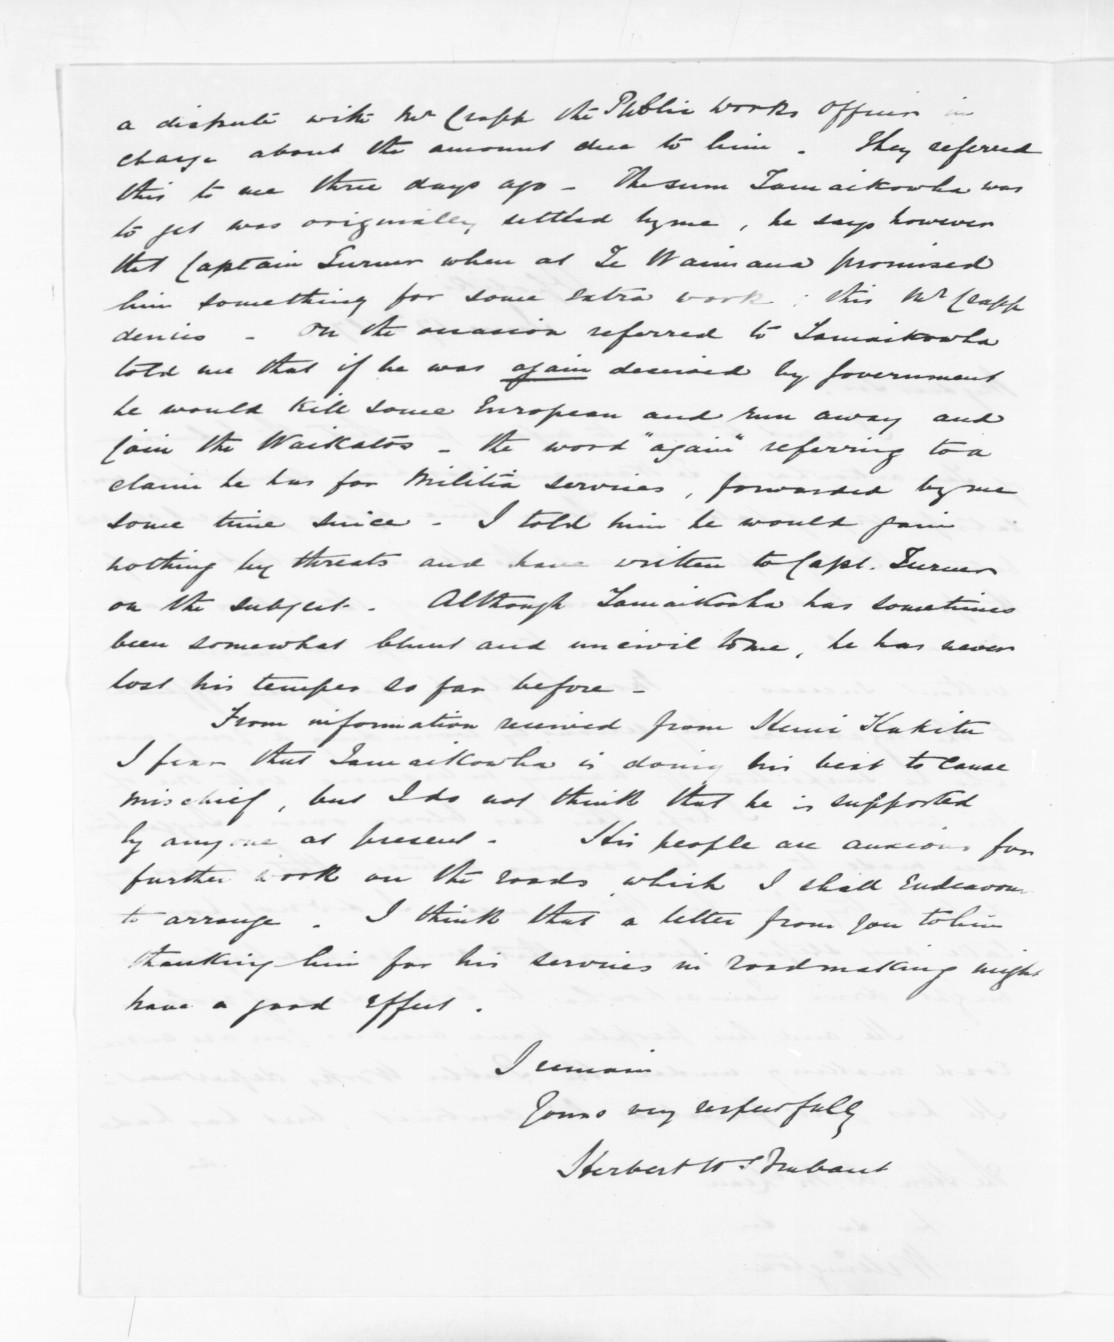 a dispute with Mr Crapp the Public Works Officer in
charge about the amount due to him. They referred
this to me three days ago - The sum Tamaikowha was
to get was originally settled by me, he says however
that Captain Turner when at Te Waimana promised
him something for some extra work; this Mr Crapp
denies - On the occasion referred to Tamaikowha
told me that if he was again deceived by Government
he would kill some European and run away and
join the Waikatos - the word "again" referring to a
claim he has for Militia services, forwarded by me
some time since - I told him he would gain
nothing by threats and have written to Capt. Turner
on the subject. Although Tamaikowha has sometimes
been somewhat blunt and uncivil to me, he has never
lost his temper so far before -
From information received from Hemi Kakitu
I fear that Tamaikowha is doing his best to cause
mischief, but I do not think that he is supported
by anyone at present. His people are anxious for
further work on the roads which I shall Endeavour
to arrange. I think that a letter from you to him
thanking him for his services in roadmaking might
have a good effect.
I remain
Yours very respectfully
Herbert W. Brabant